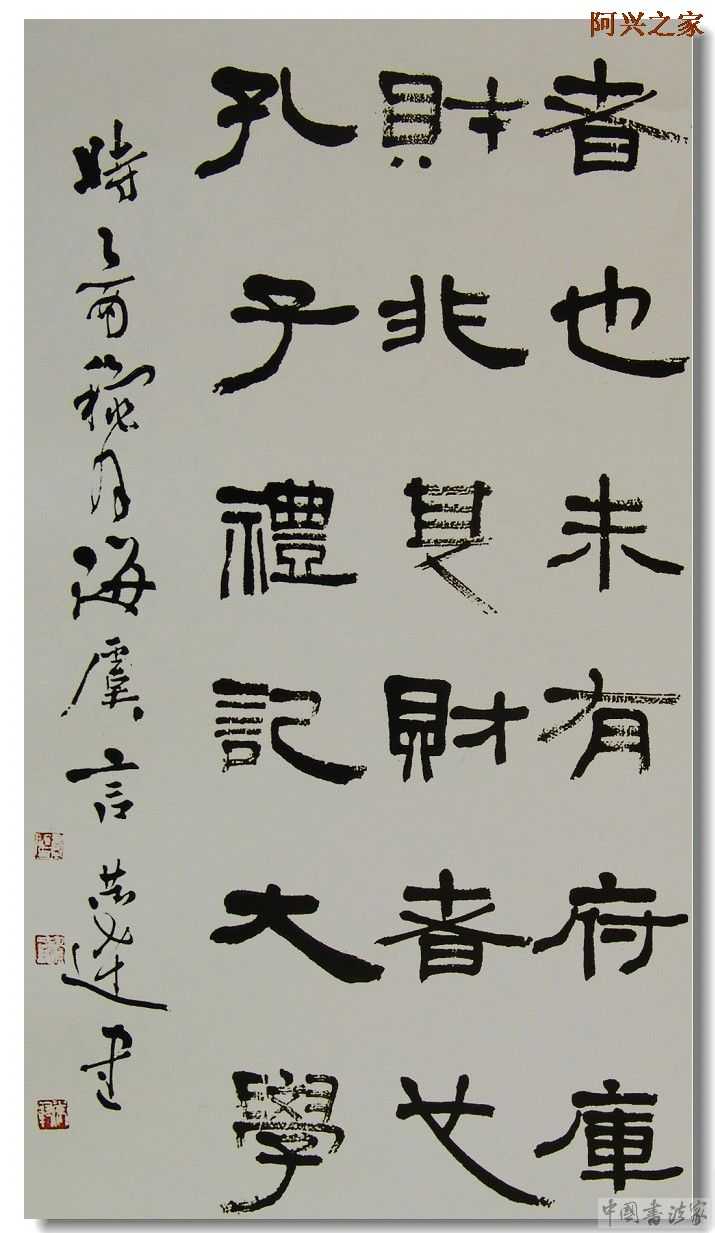 阿兴之家
者也未有府庫
財非其財者也
孔子禮記大學
時乙酉穐月海虞言恭達書
中國書法家